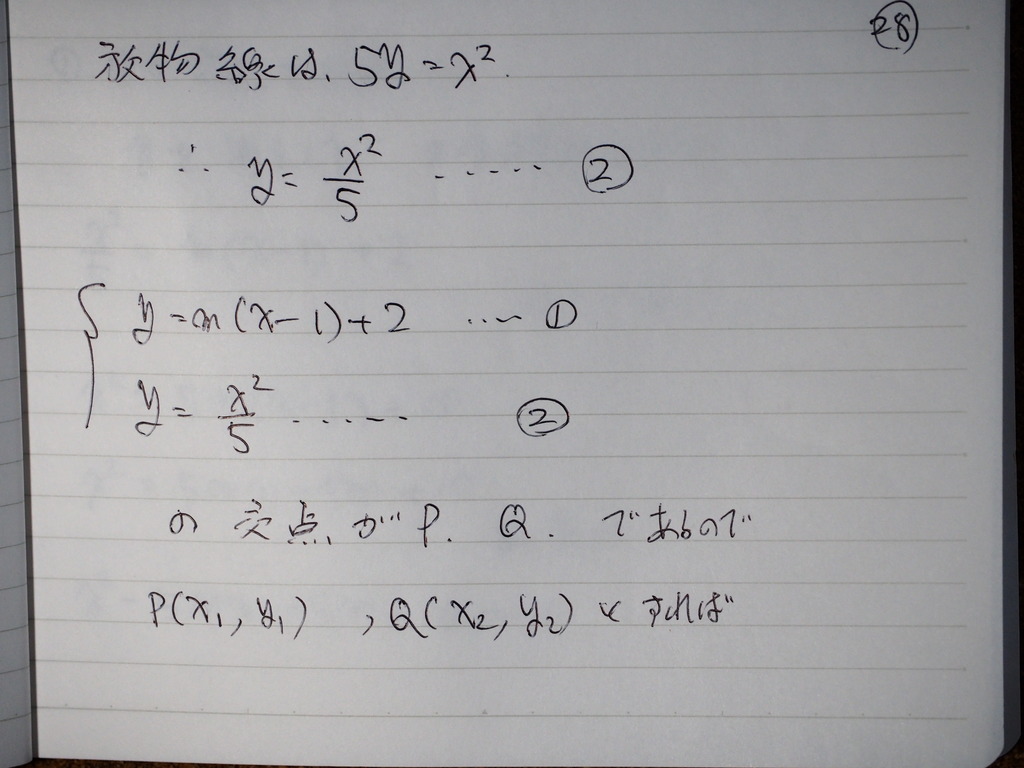 28
放物線は、5y=x².
∴ y = x²/5 ...... ②
{ y=m(x-1)+2 .... ①
y = x²/5 ....... ②
の交点がP. Q. であるので
P(x₁, y₁) , Q(x₂, y₂) とすれば